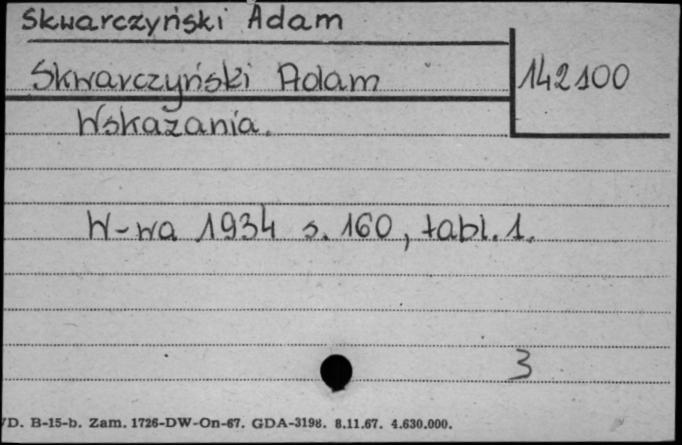 Skwarczyński Adam
Skwarczyński Adam
142100
Wskazania.
W-wa 1934 s. 160, tabl. 1.
3
VD. B-15-b. Zam. 1726-DW-On-67. GDA-3198. 8.11.67. 4.630.000.